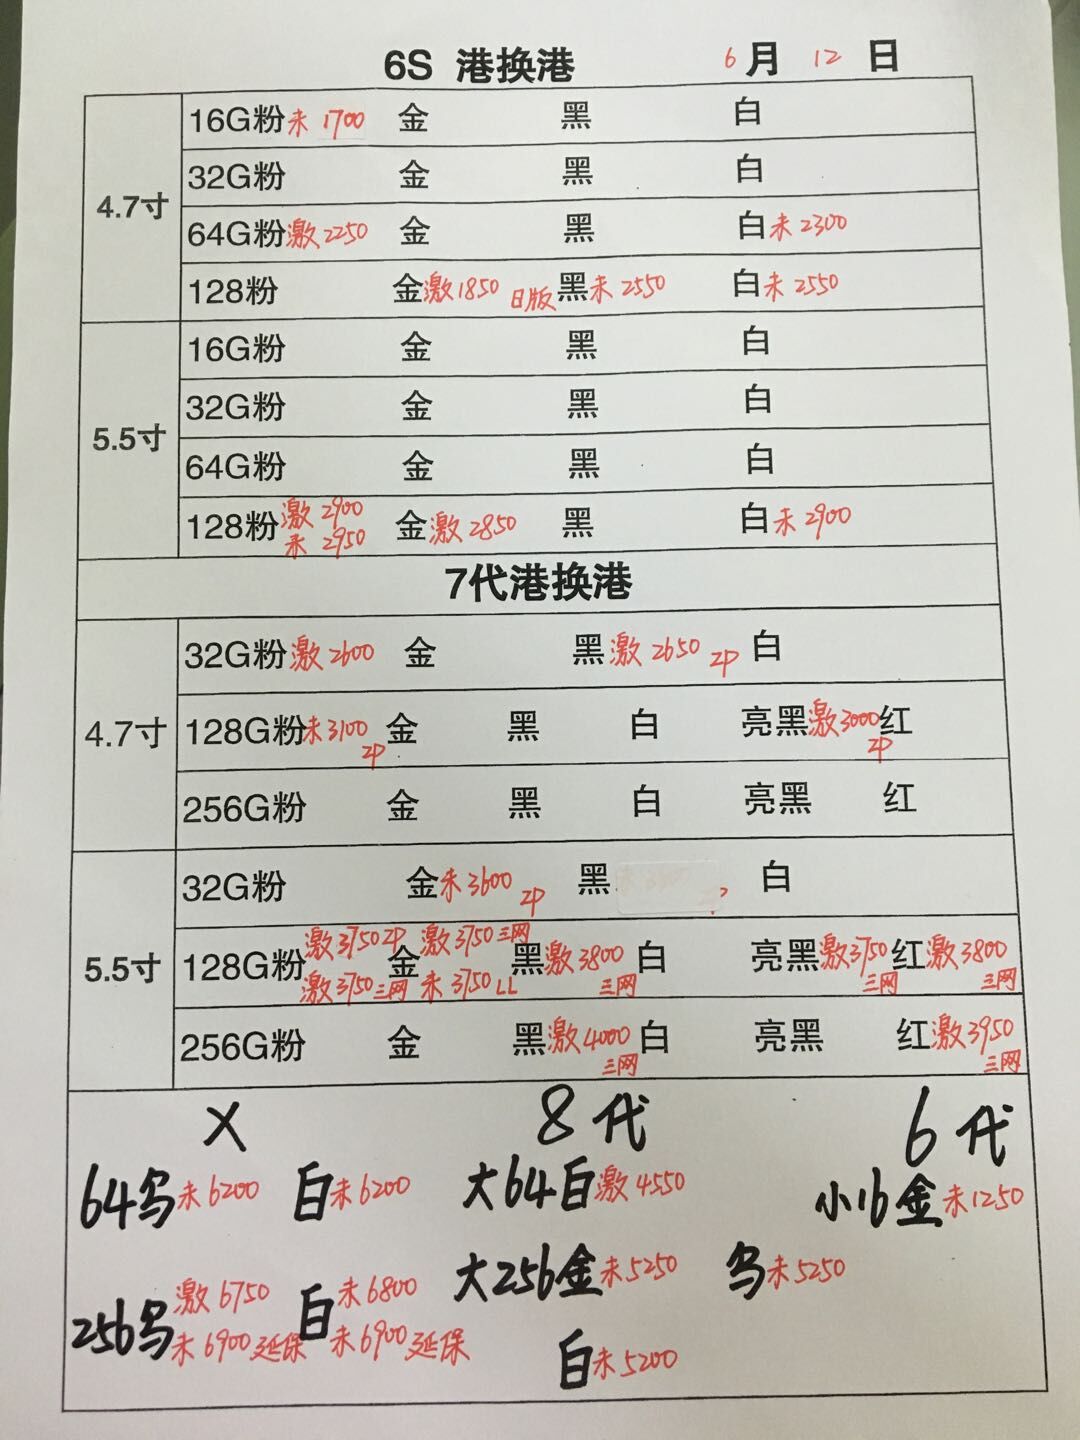 6S 港换港 6月12日
4.7寸
16G粉未1700 金 黑 白
32G粉 金 黑 白
64G粉激2250 金 黑 白未2300
128粉 金激1850 日版黑未2550 白未2550
5.5寸
16G粉 金 黑 白
32G粉 金 黑 白
64G粉 金 黑 白
128粉激2900 未2950 金激2850 黑 白未2900
7代港换港
4.7寸
32G粉激2600 金 黑激2650 ZP 白
128G粉未3100 ZP 金 黑 白 亮黑激3000 ZP 红
256G粉 金 黑 白 亮黑 红
5.5寸
32G粉 金未3600 ZP 黑 白
128G粉激3750ZP 激3750三网 金激3750三网 未3750LL 黑激3800三网 白 亮黑激3750三网 红激3800三网
256G粉 金 黑激4000三网 白 亮黑 红激3950三网
X 8代 6代
64乌未6200 白未6200 大64白激4550 小16金未1250
大256金未5250 乌未5250
256乌激6750 未6900延保 白未6800 未6900延保
白未5200